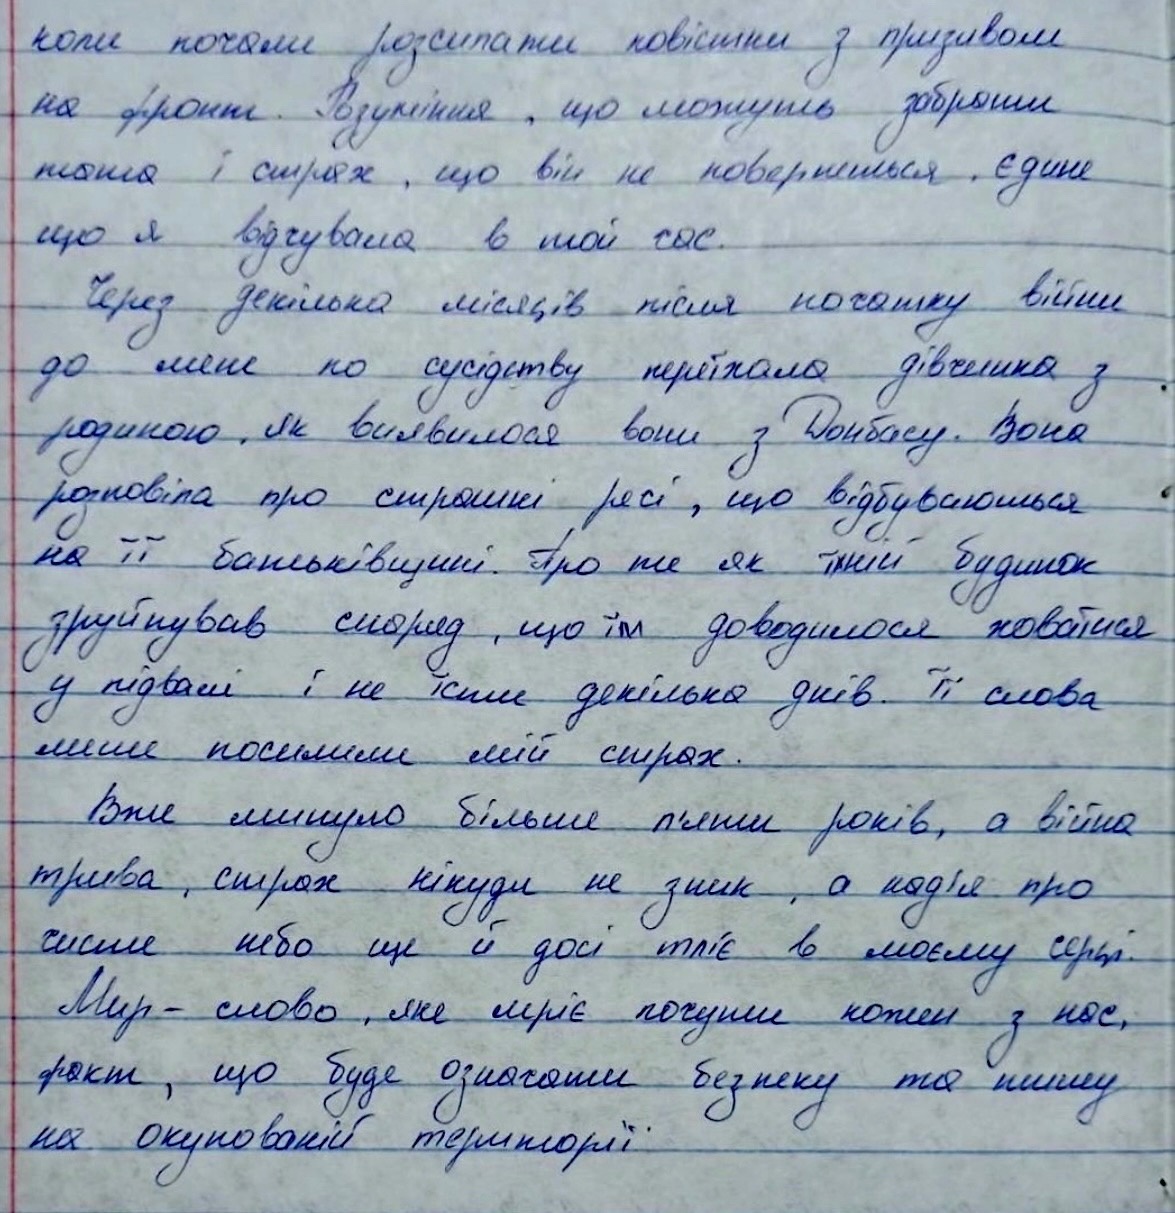 коли почали розсилати повістки з призивом
на фронт. Розуміння, що можуть забрати
тата і страх, що він не повернеться, єдине
що я відчувала в той час.
Через декілька місяців після початку війни
до мене по сусідству переїхала дівчинка з
родиною, як виявилося вони з Донбасу. Вона
розповіла про страшні речі, що відбуваються
на її батьківщині. Про те як їхній будинок
зруйнував снаряд, що їм доводилося ховатися
у підвалі і не їсти декілька днів. Її слова
лише посилили мій страх.
Вже минуло більше п'яти років, а війна
трива, страх нікуди не зник, а надія про
чисте небо ще й досі тліє в моєму серці.
Мир - слово, яке мріє почути кожен з нас,
факт, що буде означати безпеку та тишу
на окупованій території.